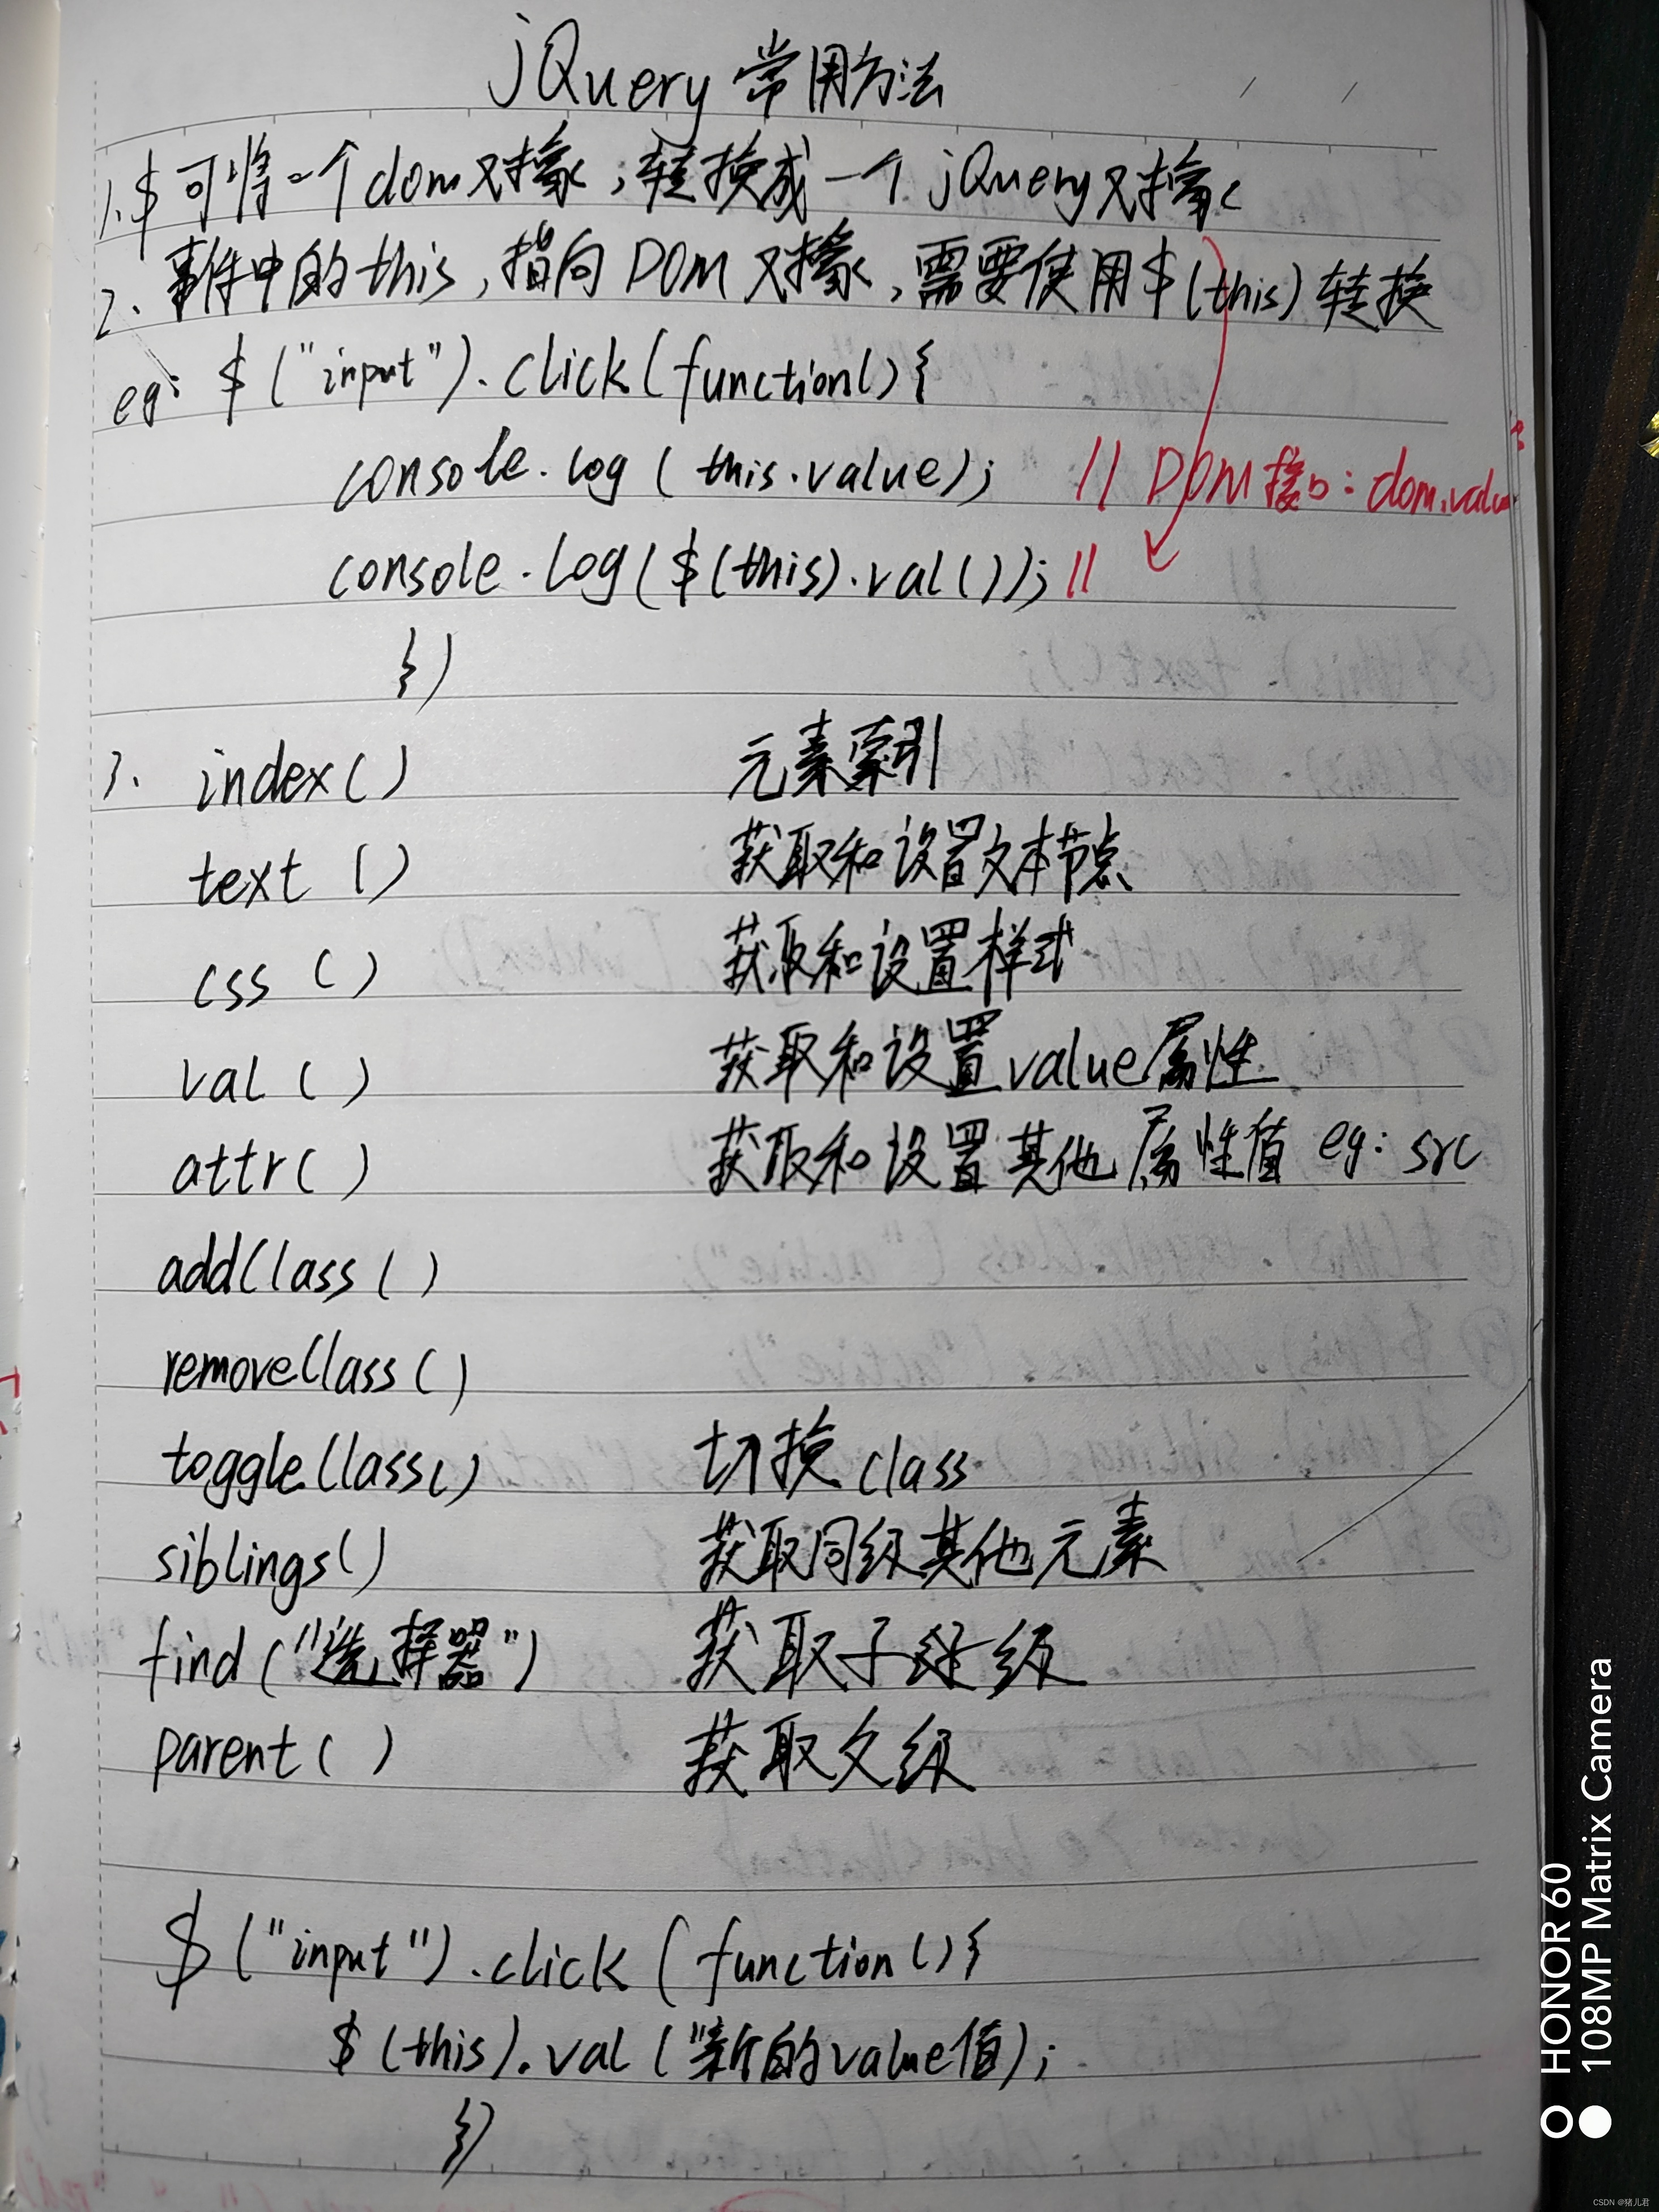 jQuery 常用方法
1. $ 可将一个dom对象,转换成一个jQuery对象
2. 事件中的this,指向DOM对象,需要使用$(this)转换
eg: $("input").click(function(){
console.log(this.value); // DOM接口:dom.value
console.log($(this).val()); //
})
3. index() 元素索引
text() 获取和设置文本节点
css() 获取和设置样式
val() 获取和设置value属性
attr() 获取和设置其他属性值 eg: src
addClass()
removeClass()
toggleClass() 切换class
siblings() 获取同级其他元素
find("选择器") 获取子级
parent() 获取父级
$("input").click(function(){
$(this).val("新的value值);
})
HONOR 60
108MP Matrix Camera
CSDN @猪儿君